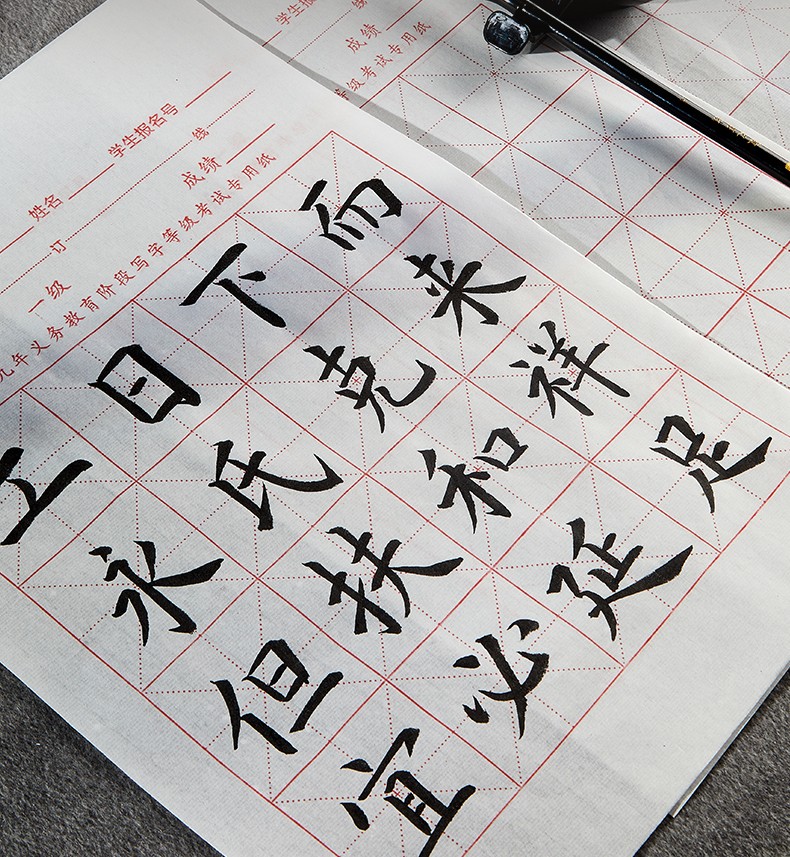 姓名 学生报名号
订 线
一级 成绩
九年义务教育阶段写字等级考试专用纸
日下而
永氏克来
但扶和祥
宜必延足
学生报
线
成绩
等级考试专用纸